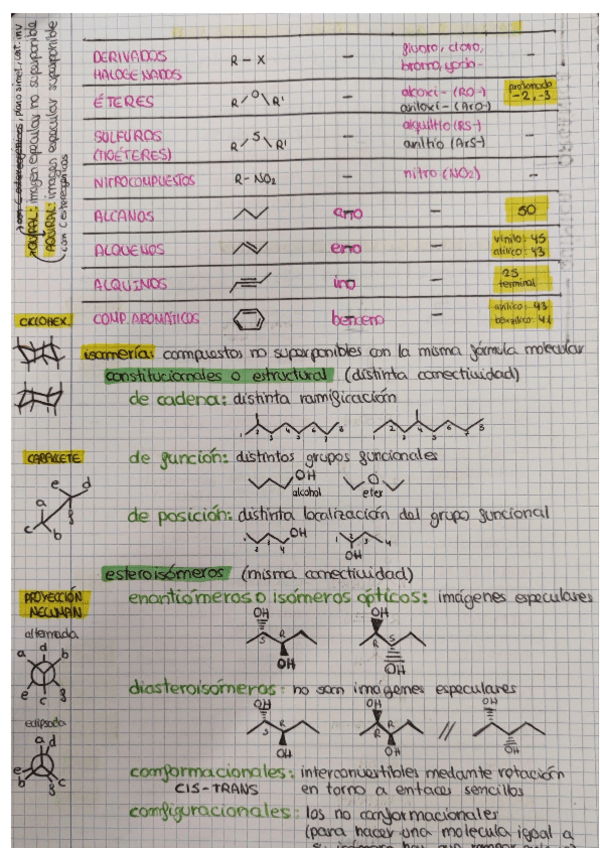 DERIVADOS HALOGENADOS R-X - fluoro, cloro, bromo, yodo- -
ÉTERES R/O\R' - alcoxi- (RO-) ariloxi- (ArO-) protonado -2, -3
SULFUROS (TIOÉTERES) R/S\R' - alquiltio (RS-) ariltio (ArS-) -
NITROCOMPUESTOS R-NO2 - nitro (NO2) -
ALCANOS ano - 50
ALQUENOS eno - vinilo: 45 alílico: 43
ALQUINOS ino - 25 terminal
COMP. AROMÁTICOS benceno - arílico: 43 bencílico: 41
QUIRAL: imagen especular no superponible
AQUIRAL: imagen especular superponible
CICLOHEX.
isomería: compuestos no superponibles con la misma fórmula molecular
constitucionales o estructural (distinta conectividad)
de cadena: distinta ramificación
1 2 3 4 5 6 7 8
1 2 3 4 5 6 7 8
CABALLETE
e d
a g
c b
de función: distintos grupos funcionales
OH O
alcohol eter
de posición: distinta localización del grupo funcional
1 2 3 4 OH
1 2 3 4
OH
esteroisómeros (misma conectividad)
PROYECCIÓN NEWMAN
enantiómeros o isómeros ópticos: imágenes especulares
alternada
a d b
e c g
OH OH
S R R S
OH OH
diasteroisómeros: no son imágenes especulares
eclipsada
a d
e b g c
OH OH OH
S R R R //
OH OH OH
conformacionales: interconvertibles mediante rotación
CIS-TRANS en torno a enlaces sencillos
configuracionales: los no conformacionales
(para hacer una molecula igual a